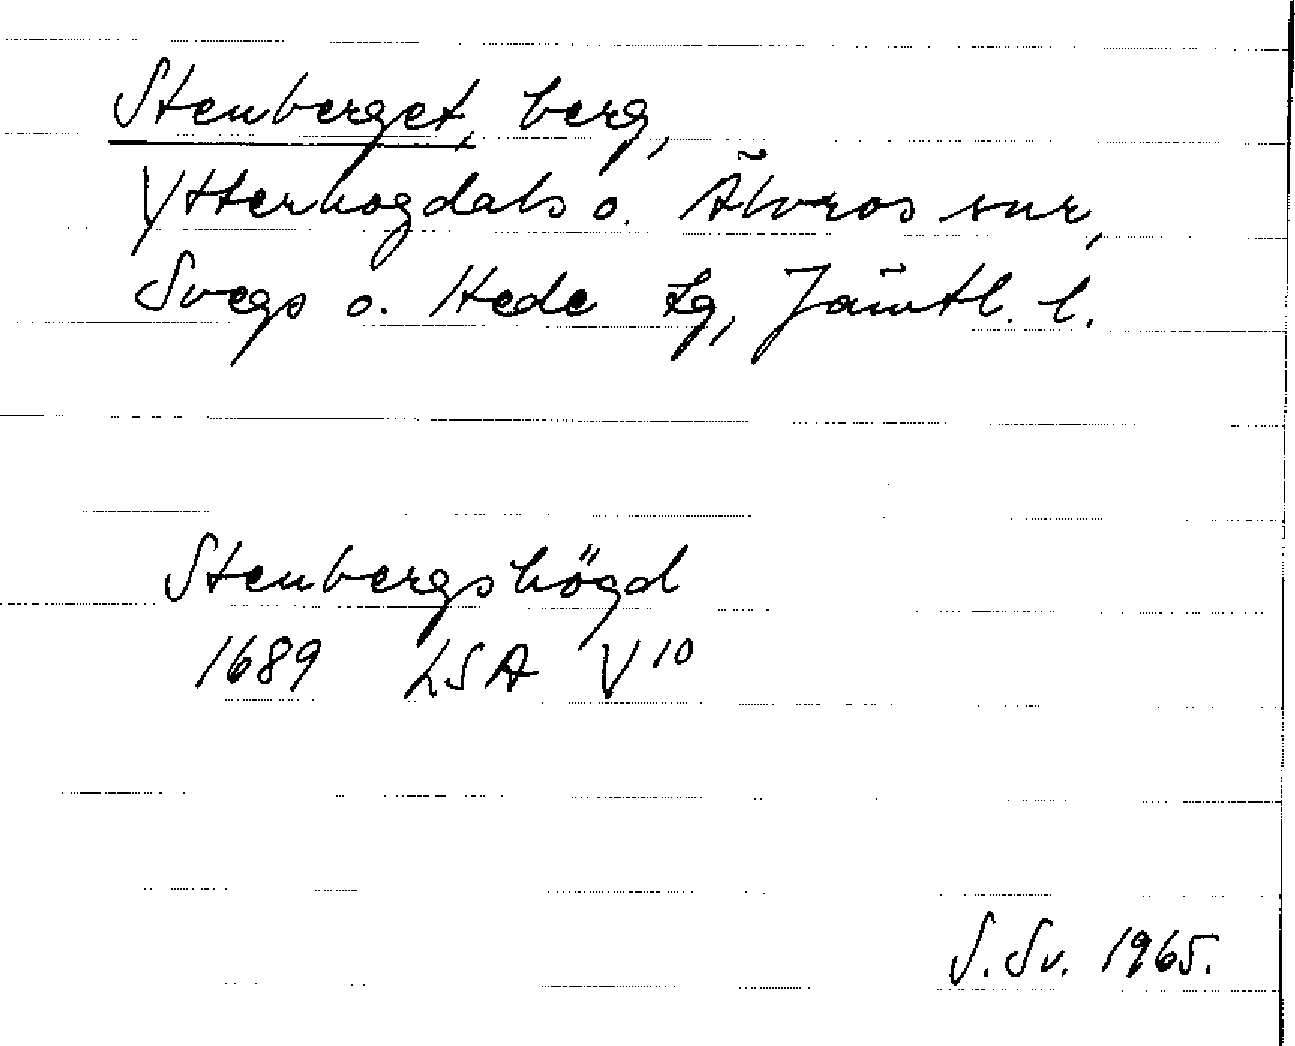 Stenberget, berg,
Ytterhogdals o. Älvros snr,
Svegs o. Hede tg, Jämtl. l.
Stenbergshögd
1689 LSA V10
S. Sv. 1965.